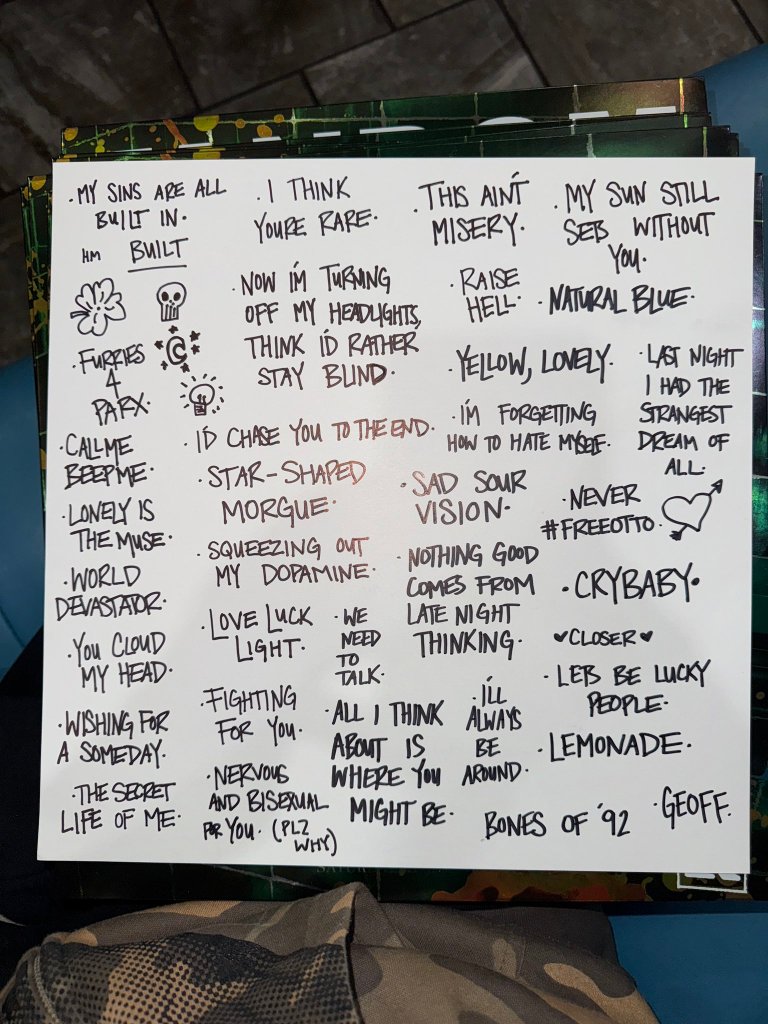 · MY SINS ARE ALL
BUILT IN ·
HM BUILT
· I THINK
YOURE RARE ·
· THIS AIN'T
MISERY ·
· MY SUN STILL
SETS WITHOUT
YOU ·
· NOW I'M TURNING
OFF MY HEADLIGHTS,
THINK I'D RATHER
STAY BLIND ·
· RAISE
HELL ·
· NATURAL BLUE ·
©
· FURRIES
4
PARX ·
· YELLOW, LOVELY ·
· LAST NIGHT
I HAD THE
STRANGEST
DREAM OF
ALL ·
· I'D CHASE YOU TO THE END ·
· I'M FORGETTING
HOW TO HATE MYSELF ·
· CALL ME
BEEP ME ·
· STAR-SHAPED
MORGUE ·
· SAD SOUR
VISION ·
· NEVER
#FREEOTTO ·
· LONELY IS
THE MUSE ·
· SQUEEZING OUT
MY DOPAMINE ·
· NOTHING GOOD
COMES FROM
LATE NIGHT
THINKING ·
· CRYBABY ·
· WORLD
DEVASTATOR ·
· LOVE LUCK
LIGHT ·
· WE
NEED
TO
TALK ·
♥ CLOSER ♥
· YOU CLOUD
MY HEAD ·
· LET'S BE LUCKY
PEOPLE ·
· FIGHTING
FOR YOU ·
· ALL I THINK
ABOUT IS
WHERE YOU
MIGHT BE ·
· I'LL
ALWAYS
BE
AROUND ·
· WISHING FOR
A SOMEDAY ·
· LEMONADE ·
· THE SECRET
LIFE OF ME ·
· NERVOUS
AND BISEXUAL
FOR YOU · (PLZ
WHY)
BONES OF '92
· GEOFF ·